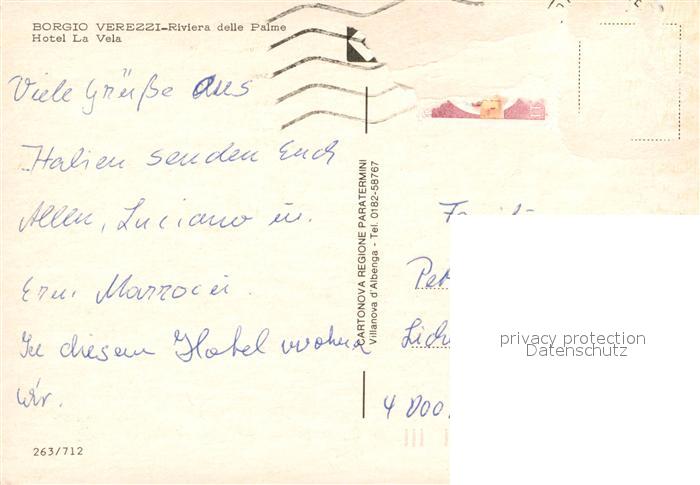 BORGIO VEREZZI-Riviera delle Palme
Hotel La Vela
Viele Grüße aus
Italien senden Euch
Allen, Luciano u.
Erni Marzocci.
In diesem Hotel wohnen
wir.
263/712
CARTONOVA REGIONE PARATERMINI
Villanova d'Albenga - Tel. 0182-58767
Pet
4000
privacy protection
Datenschutz